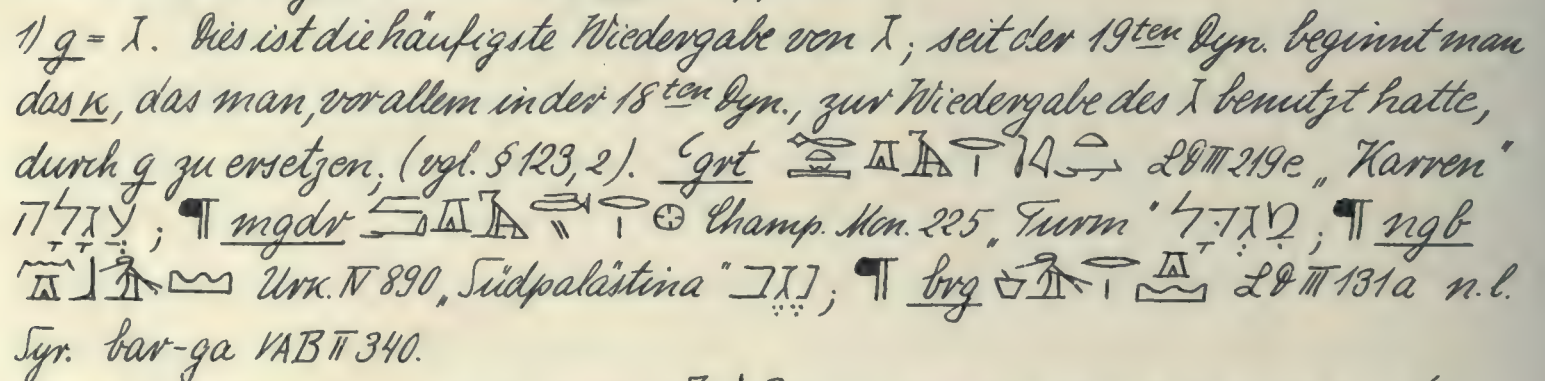 1) g = ג. Dies ist die häufigste Wiedergabe von ג; seit der 19ten Dyn. beginnt man
das k, das man, vor allem in der 18ten Dyn., zur Wiedergabe des ג benutzt hatte,
durch g zu ersetzen, (vgl. § 123, 2). ꜥgrt LD III 219e „Karren“
עֲגָלָה; ¶ mgdr Champ. Mon. 225 „Turm“ מִגְדָּל; ¶ ngb
Urk. IV 890 „Südpalästina“ נֶגֶב; ¶ brg LD III 131a n.l.
Syr. bar-ga VAB II 340.